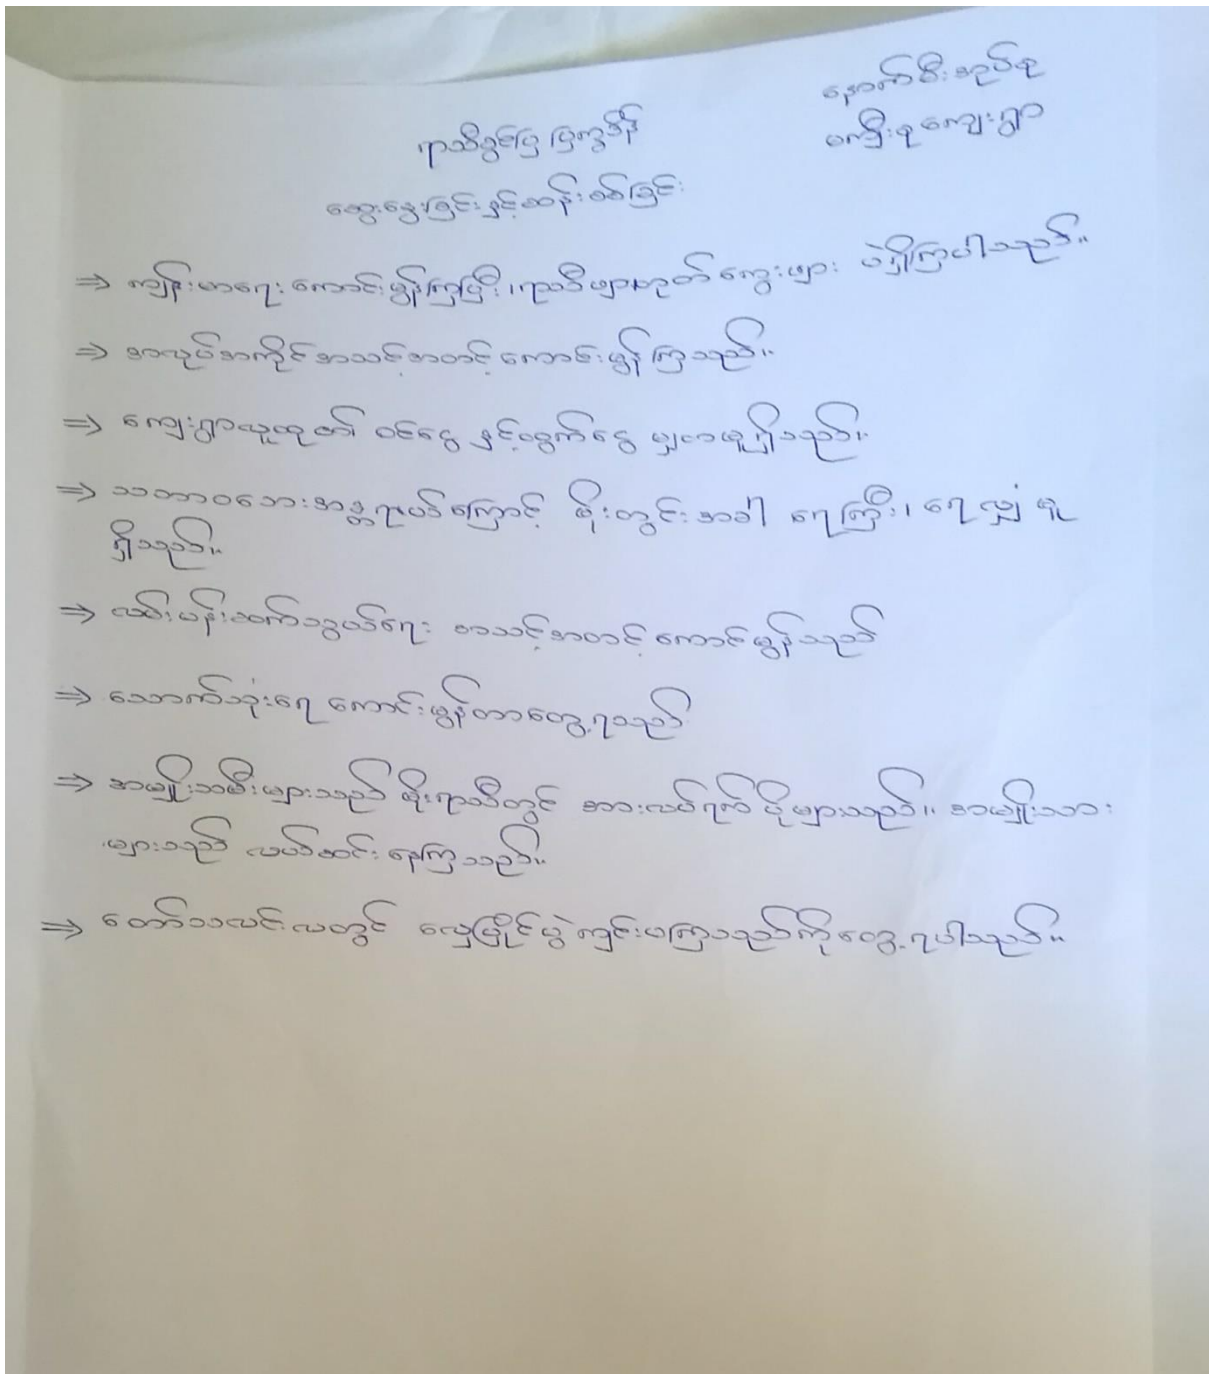 နောက်မီးအုပ်စု
မကြီးစုကျေးရွာ
ရာသီခွင်ပြ ပြက္ခဒိန်
ဆွေးနွေးခြင်းနှင့်ဆန်းစစ်ခြင်း
⇒ ကျန်းမာရေးကောင်းမွန်ကြပြီး၊ ရာသီဖျားတုတ်ကွေးများ ပဲရှိကြပါသည်။
⇒ အလုပ်အကိုင်အသင့်အတင့်ကောင်းမွန်ကြသည်။
⇒ ကျေးရွာလူထု၏ ဝင်ငွေ နှင့်ထွက်ငွေ မျှတမှုရှိသည်။
⇒ သဘာဝဘေးအန္တရာယ်ကြောင့် မိုးတွင်းအခါ ရေကြီး၊ ရေလျှံ မှု
ရှိသည်။
⇒ လမ်းပန်းဆက်သွယ်ရေး အသင့်အတင့်ကောင်မွန်သည်
⇒ သောက်သုံးရေ ကောင်းမွန်တာတွေ့ရသည်
⇒ အမျိုးသမီးများသည် မိုးရာသီတွင် အားလပ်ရက် ပိုများသည်။ အမျိုးသား
များသည် လယ်ဆင်းနေကြသည်။
⇒ တော်သလင်းလတွင် လှေပြိုင်ပွဲ ကျင်းပကြသည်ကိုတွေ့ရပါသည်။